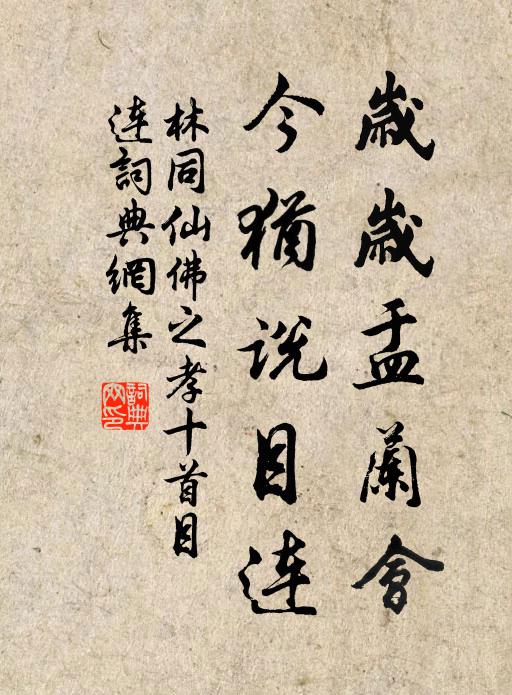 歲歲盂蘭會
今猶說目連
林同仙佛之孝十首目
連詞典網集
詞典網印